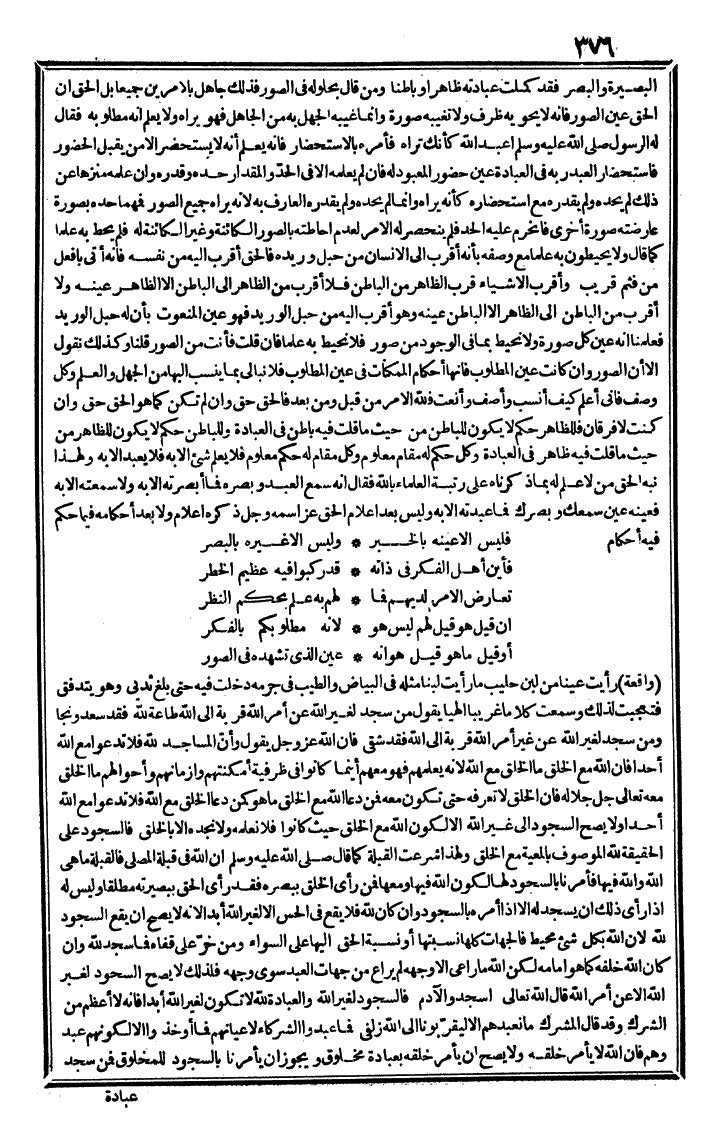 ٣٧٦
البصيرة والبصر فقد كملت عبادته ظاهرا وباطنا ومن قال بحلوله فى الصور فذلك جاهل بالامرين جميعا بل الحق ان
الحق عين الصور فانه لا يحويه ظرف ولا تغيبه صورة وانما غيبه الجهل به من الجاهل فهو يراه ولا يعلم انه مطلوبه فقال
له الرسول صلى الله عليه وسلم اعبد الله كأنك تراه فأمره بالاستحضار فانه يعلم أنه لا يستحضر الا من يقبل الحضور
فاستحضار العبد ربه فى العبادة عين حضور المعبود له فان لم يعلمه الا فى الحد والمقدار حده وقدره وان علمه منزها عن
ذلك لم يحده ولم يقدره مع استحضاره كأنه يراه وانما لم يحده ولم يقدره العارف به لانه يراه جميع الصور فمهما حده بصورة
عارضته صورة أخرى فانخرم عليه الحد فلم ينحصر له الامر لعدم احاطته بالصور الكائنة وغير الكائنة له فلم يحط به علما
كما قال ولا يحيطون به علما مع وصفه بأنه أقرب الى الانسان من حبل وريده فالحق أقرب اليه من نفسه فانه أتى بافعل
من فثم قريب وأقرب الاشياء قرب الظاهر من الباطن فلا أقرب من الظاهر الى الباطن الا الظاهر عينه ولا
أقرب من الباطن الى الظاهر الا الباطن عينه وهو أقرب اليه من حبل الوريد فهو عين المنعوت بأن له حبل الوريد
فعلمنا انه عين كل صورة ولا نحيط بما فى الوجود من صور فلا نحيط به علما فان قلت فأنت من الصور قلنا وكذلك نقول
الا أن الصور وان كانت عين المطلوب فانها أحكام الممكنات فى عين المطلوب فلا نبالى بما ينسب اليها من الجهل والعلم وكل
وصف فانى أعلم كيف أنسب وأصف وأنعت فلله الامر من قبل ومن بعد فالحق حق وان لم تكن كما هو الحق حق وان
كنت لا فرقان فللظاهر حكم لا يكون للباطن من حيث ما قلت فيه باطن فى العبادة وللباطن حكم لا يكون للظاهر من
حيث ما قلت فيه ظاهر فى العبادة وكل حكم له مقام معلوم وكل مقام له حكم معلوم فلا يعلم شئ الا به فلا يعبد الا به ولهذا
نبه الحق من لا علم له بما ذكرناه على رتبة العلماء بالله فقال انه سمع العبد وبصره فما أبصرته الا به ولا سمعته الا به
فعينه عين سمعك وبصرك فما عبدته الا به وليس بعد اعلام الحق عز اسمه وجل ذكره اعلام ولا بعد أحكامه فيما حكم
فيه أحكام
فليس الا عينه بالخبر * وليس الا غيره بالبصر
فأين أهل الفكر فى ذاته * قد ركبوا فيه عظيم الخطر
تعارض الامر لديهم فما * لهم به علم بحكم النظر
ان قيل هو قيل لهم ليس هو * لانه مطلوبكم بالفكر
أو قيل ما هو قيل هو انه * عين الذى تشهده فى الصور
(واقعة) رأيت عينا من لبن حليب ما رأيت لبنا مثله فى البياض والطيب فى جرمه دخلت فيه حتى بلغ ثديى وهو يتدفق
فتعجبت لذلك وسمعت كلاما غريبا الهيا يقول من سجد لغير الله عن أمر الله قربة الى الله طاعة لله فقد سعد ونجا
ومن سجد لغير الله عن غير أمر الله قربة الى الله فقد شقى فان الله عز وجل يقول وأن المساجد لله فلا تدعوا مع الله
أحدا فان الله مع الخلق ما الخلق مع الله لانه يعلمهم فهو معهم أينما كانوا فى ظرفية أمكنتهم وازمانهم وأحوالهم ما الخلق
معه تعالى جل جلاله فان الخلق لا تعرفه حتى تكون معه فمن دعا الله مع الخلق ما هو كمن دعا الخلق مع الله فلا تدعوا مع الله
أحدا ولا يصح السجود الى غير الله الا لكون الله مع الخلق حيث كانوا فلا نعلمه ولا نجده الا بالخلق فالسجود على
الحقيقة لله الموصوف بالمعية مع الخلق ولهذا شرعت القبلة كما قال صلى الله عليه وسلم ان الله فى قبلة المصلى فالقبلة ما هى
الله والله فيها فأمرنا بالسجود لها لكون الله فيها ومعها فمن رأى الخلق ببصره فقد رأى الحق ببصيرته مطلقا وليس له
اذا رأى ذلك ان يسجد له الا اذا أمره بالسجود وان كان لله فلا يقع فى الحس الا لغير الله أبدا لانه لا يصح ان يقع السجود
لله لان الله بكل شئ محيط فالجهات كلها نسبتها أو نسبة الحق اليها على السواء ومن خر على قفاه فما سجد لله وان
كان الله خلفه كما هو امامه لكن الله ما راعى الا وجهه لم يراع من جهات العبد سوى وجهه فلذلك لا يصح السجود لغير
الله الا عن أمر الله قال الله تعالى اسجدوا لآدم فالسجود لغير الله والعبادة لله لا تكون لغير الله أبدا فانه لا أعظم من
الشرك وقد قال المشرك ما نعبدهم الا ليقربونا الى الله زلفى فما عبدوا الشركاء لاعيانهم فما أوخذوا الا لكونهم عبد
وهم فان الله لا يأمر خلقه ولا يصح ان يأمر خلقه بعبادة مخلوق ويجوز ان يأمرنا بالسجود للمخلوق فمن سجد
عبادة